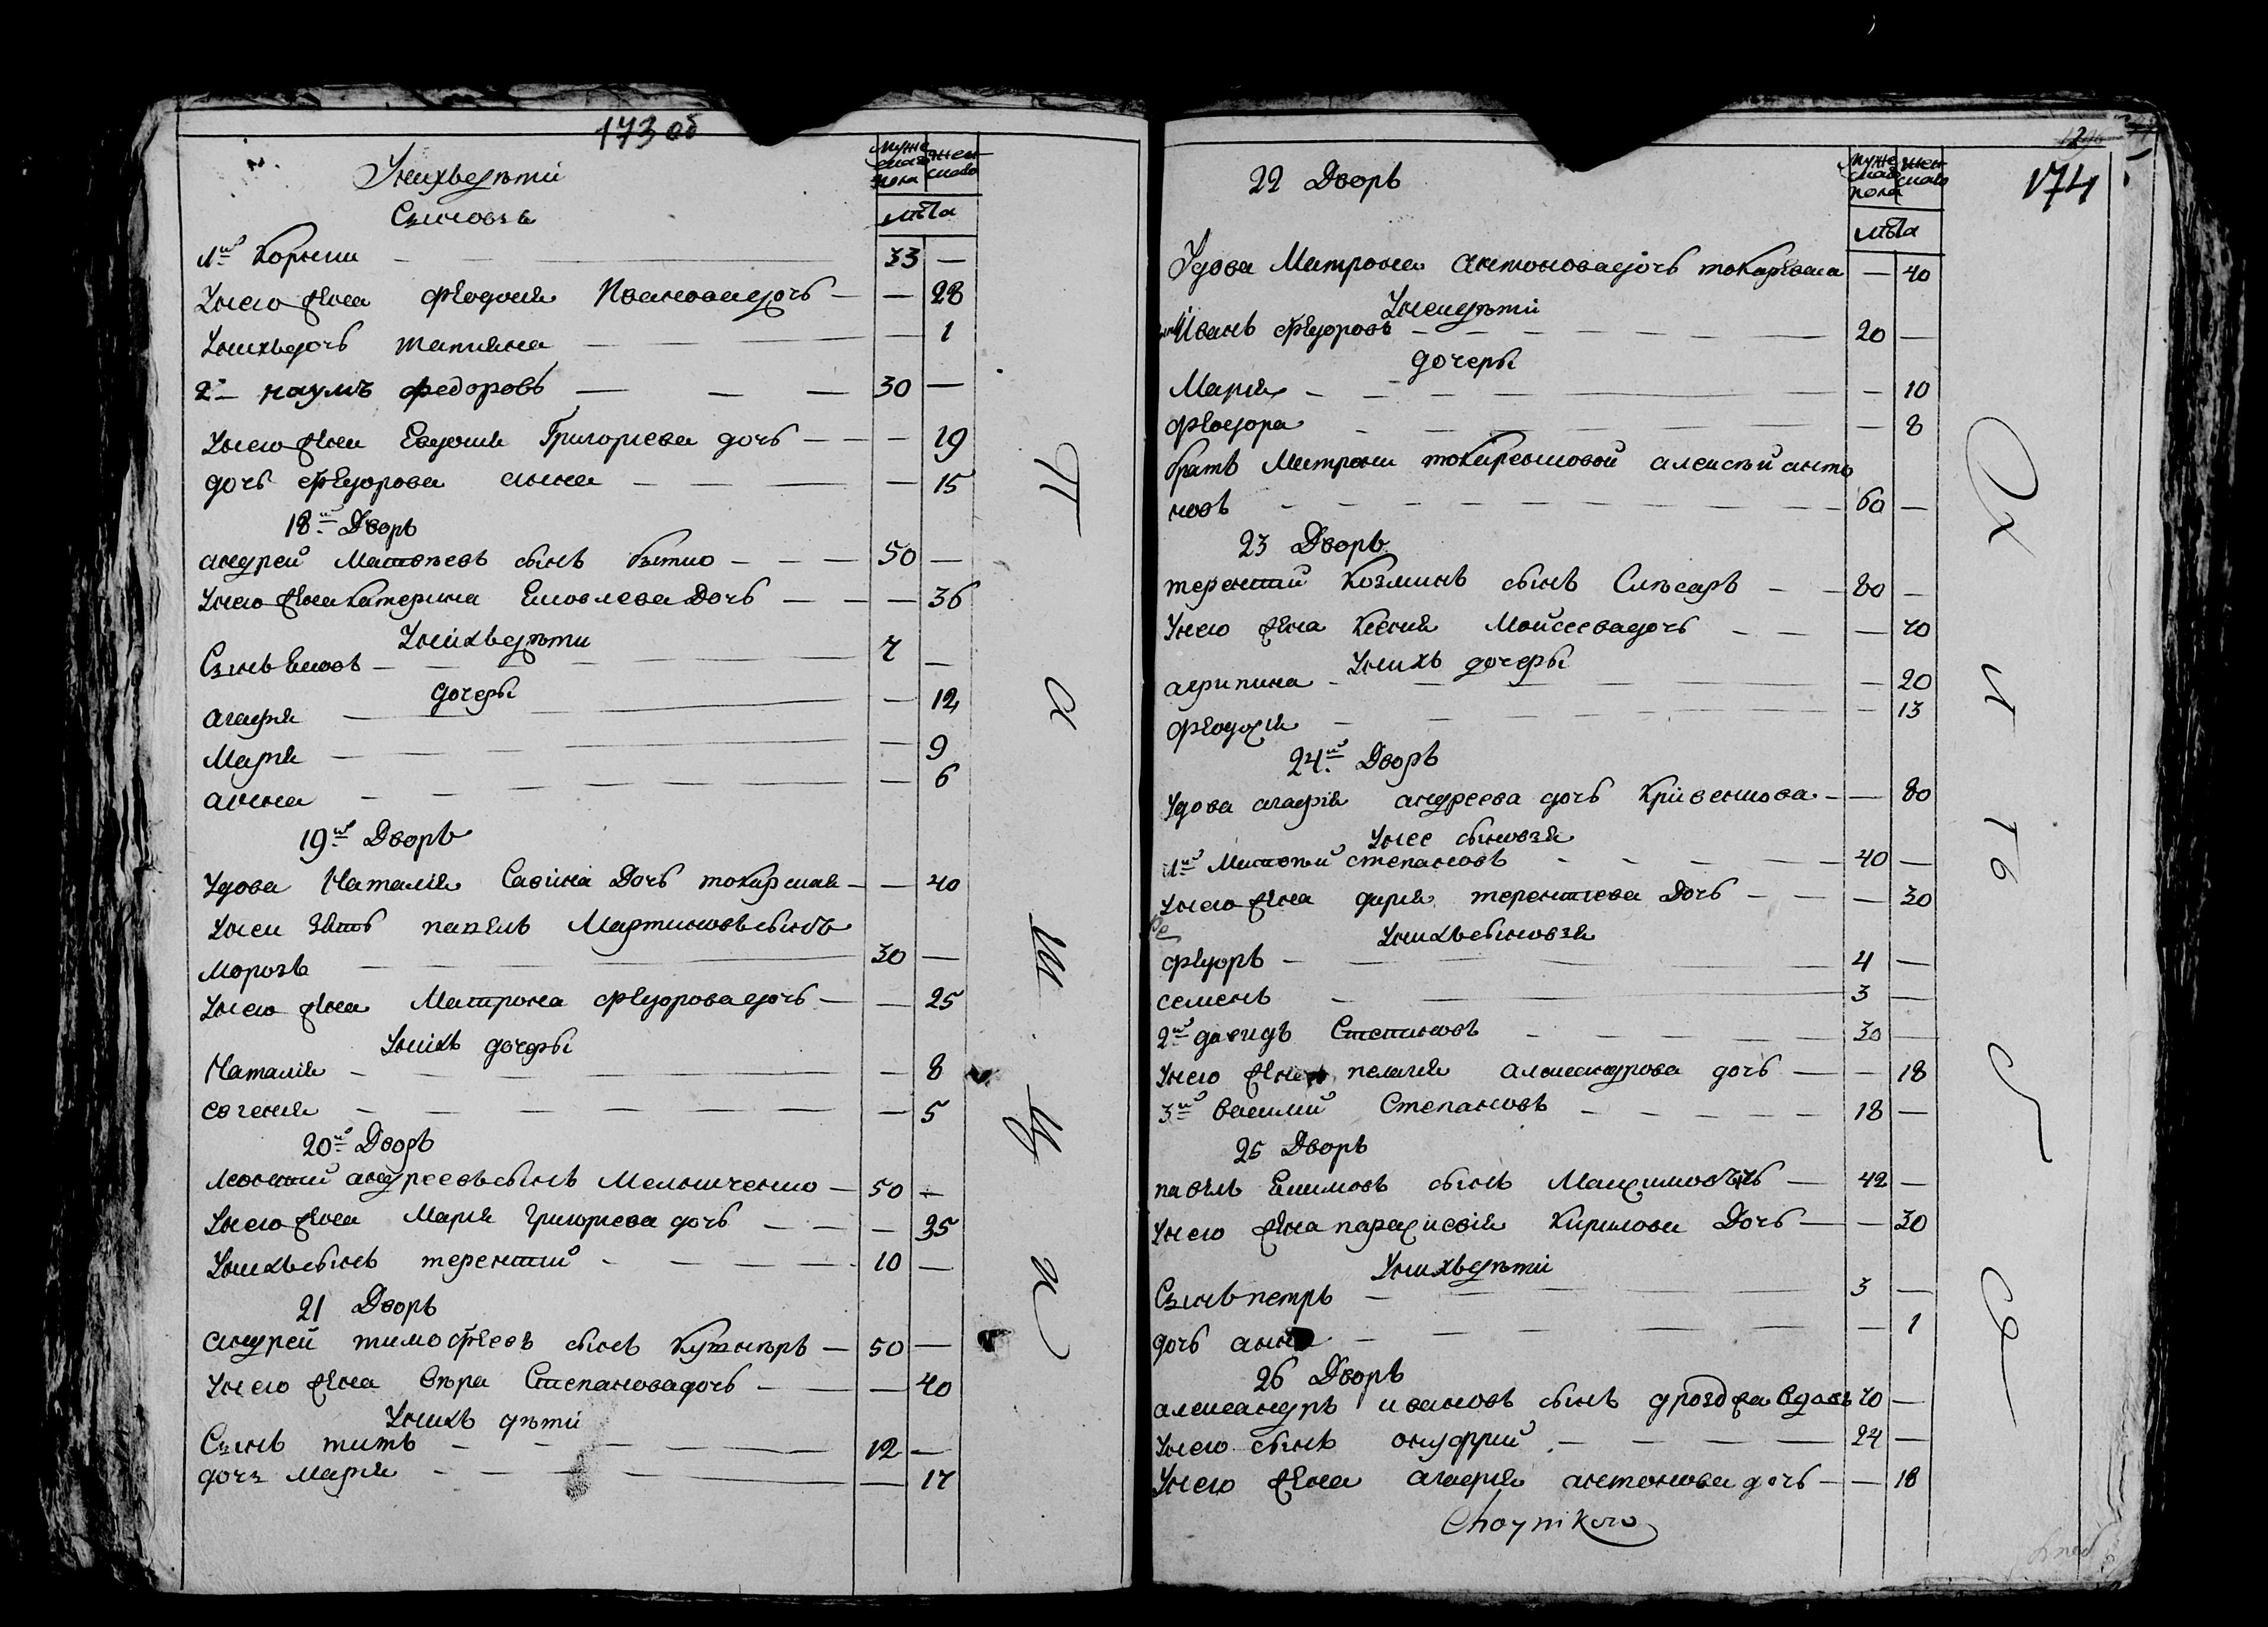 173 об
Мужескаго пола
Женскаго
Лѣта
Унихъ дѣти
Сыновья
1й Корнии 33 —
Унего жена Феодосия Иванова дочь — 28
Унихъ дочь татияна — 1
2й наумъ федоровъ 30 —
Унего жена Евдокия Григориева дочь — 19
дочь Федорова анна — 15
18й Дворъ
андрей Матвѣевъ сынъ 50 —
Унего жена Катерина Яковлева Дочь — 36
Унихъ дѣти
Сынъ Яковъ 7 —
дочеры
агафия — 12
Мария — 9
анна — 6
19й Дворъ
Удова Наталия Савина Дочь токарская — 40
Унеи Зять павелъ Мартиновъ сынъ
Морозъ 30 —
Унего жена Матрона Федорова дочь — 25
Унихъ дочеры
Наталия — 8
евгения — 5
20й Дворъ
Леонтий андреевъ сынъ Мельниченко 50 —
Унего жена Мария григориева дочь — 35
Унихъ сынъ терентий 10 —
21 Дворъ
андрей тимофеевъ сынъ Кушниръ 50 —
Унего жена вѣра Степанова дочь — 40
Унихъ дѣти
Сынъ титъ 12 —
дочь Мария — 17
П а ш у к
174
Мужескаго пола
Женскаго
Лѣта
22 Дворъ
Удова Матрона антонова дочь токарева — 40
Унеи дѣти
Иванъ Федоровъ 20 —
дочеры
Мария — 10
Феодора — 8
братъ Матрони токаренковой алексѣй анто
новъ 60 —
23 Дворъ
терентий Козминъ сынъ Слѣсаръ 80 —
Унего жена Ксения Мойсеева дочь — 70
Унихъ дочеры
агрипина — 20
Феодосия — 13
24й Дворъ
Удова агафия андреева дочь Кривенкова — 80
Унее сыновья
1й Матвѣй степановъ 40 —
Унего жена дария терентиева Дочь — 30
Унихъ сыновья
Федоръ 4 —
семенъ 3 —
2й давидъ Степановъ 30 —
Унего жена пелагия александрова дочь — 18
3й василий Степановъ 18 —
25 Дворъ
павелъ Екимовъ сынъ 42 —
Унего жена параскивия Кирилова Дочь — 30
Унихъ дѣти
Сынъ петръ 3 —
дочь анна — 1
26 Дворъ
александръ ивановъ сынъ дрозд вдовъ 70 —
Унего сынъ онуфрий 24 —
Унего жена агафия антонова дочь — 18
Choynikow